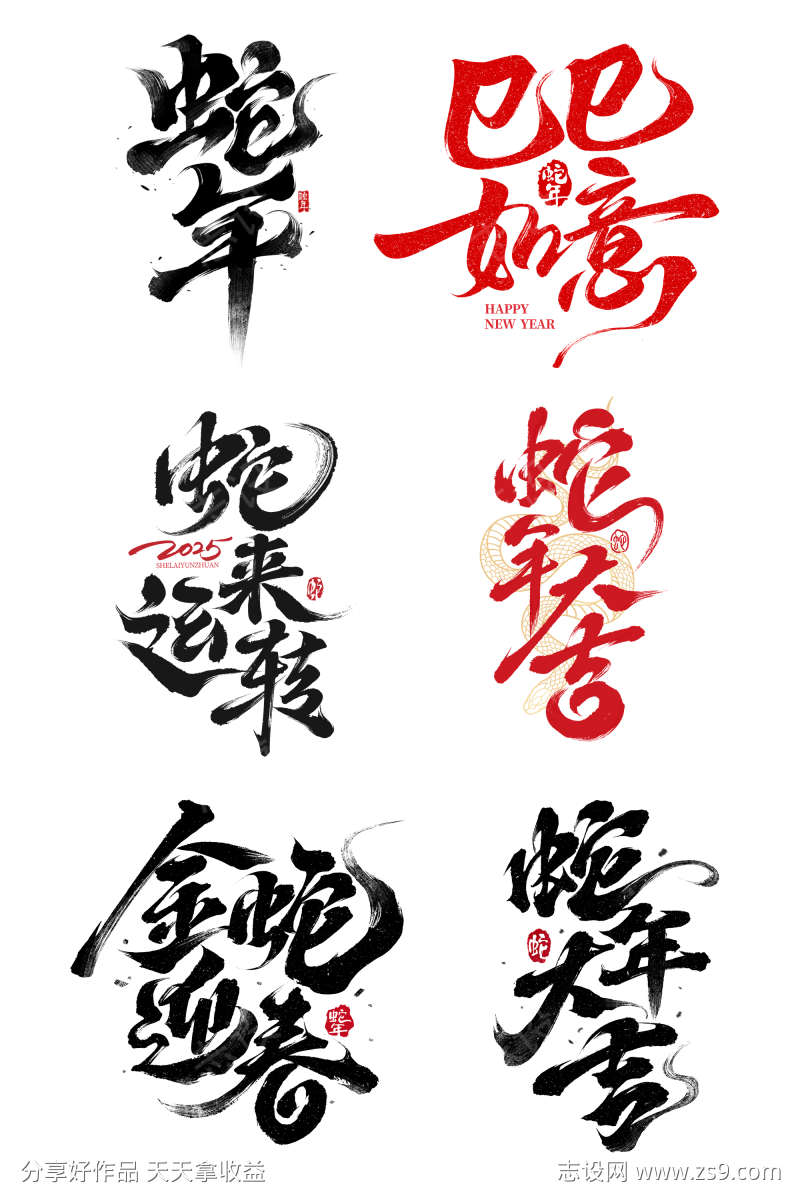 蛇
年
蛇年
巳巳
如意
蛇年
HAPPY
NEW YEAR
蛇
来
运
转
2025
SHELAIYUNZHUAN
蛇
蛇
年大
吉
蛇
金蛇
迎春
蛇年
蛇
年
大
吉
蛇
分享好作品 天天拿收益
志设网 www.zs9.com